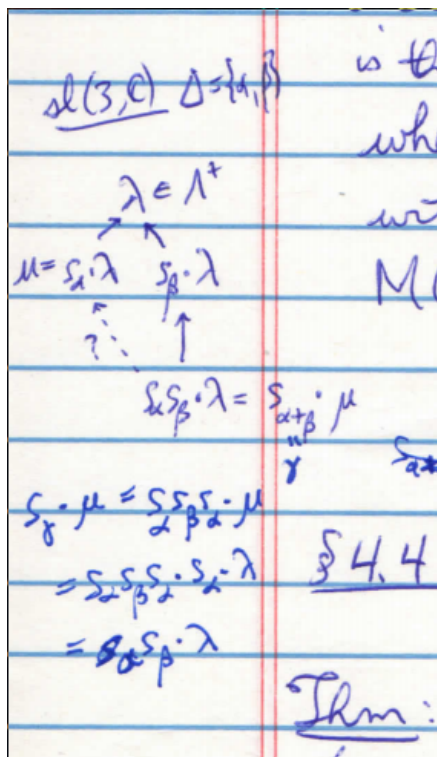 sl(3,ℂ) Δ={α,β}
λ ∈ Λ⁺
μ = s_α·λ s_β·λ
?
s_α s_β·λ = s_{α+β}·μ
"
γ
s_γ·μ = s_α s_β s_α·μ
= s_α s_β s_α·s_α·λ
= s_α s_β·λ
is
M(
§ 4.4
Thm: